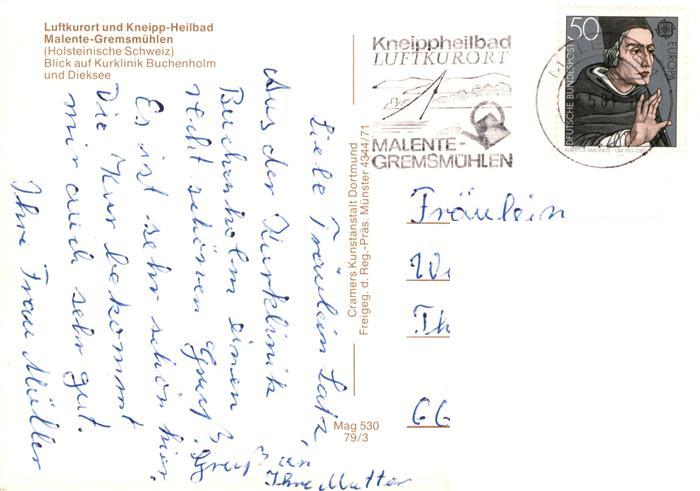 Luftkurort und Kneipp-Heilbad
Malente-Gremsmühlen
(Holsteinische Schweiz)
Blick auf Kurklinik Buchenholm
und Dieksee
Liebe Fräulein Latz
Aus der Kurklinik
Buchenholm einen
recht schönen Gruß.
Es ist sehr schön hier.
Die Kur bekommt
mir auch sehr gut.
Ihre Frau Müller
Gruß an
Ihre Mutter
Cramers Kunstanstalt Dortmund
Freigeg. d. Reg.-Präs. Münster 4344/71
Mag 530
79/3
Kneippheilbad
LUFTKURORT
MALENTE-
GREMSMÜHLEN
50
DEUTSCHE BUNDESPOST
EUROPA
Fräulein
Wi
Th
66